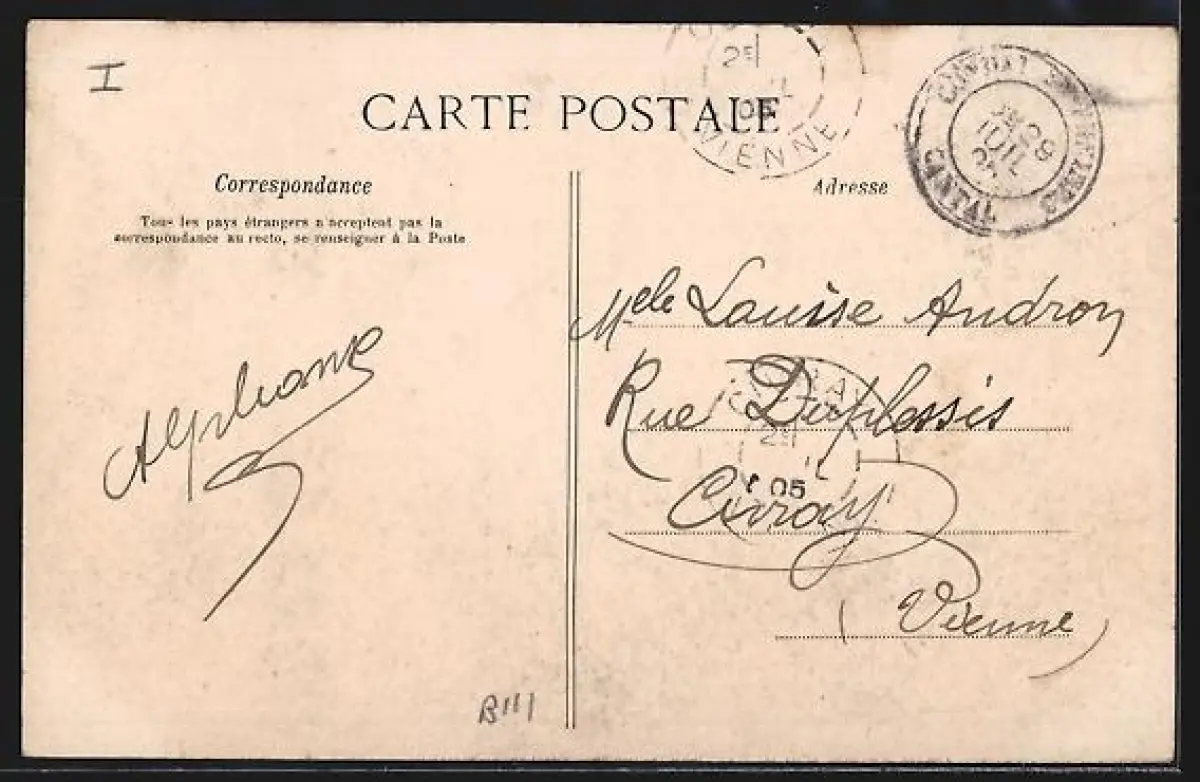 I
CARTE POSTALE
Correspondance
Tous les pays étrangers n'acceptent pas la
correspondance au recto, se renseigner à la Poste
Alphonse
B111
25
05
VIENNE
CANTAL
28
JUIL
05
Adresse
Melle Louise Andron
Rue Duplessis
Civray
(Vienne)
05